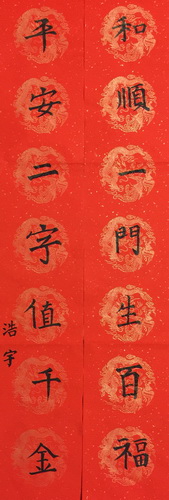 和順一門生百福
平安二字值千金
浩宇